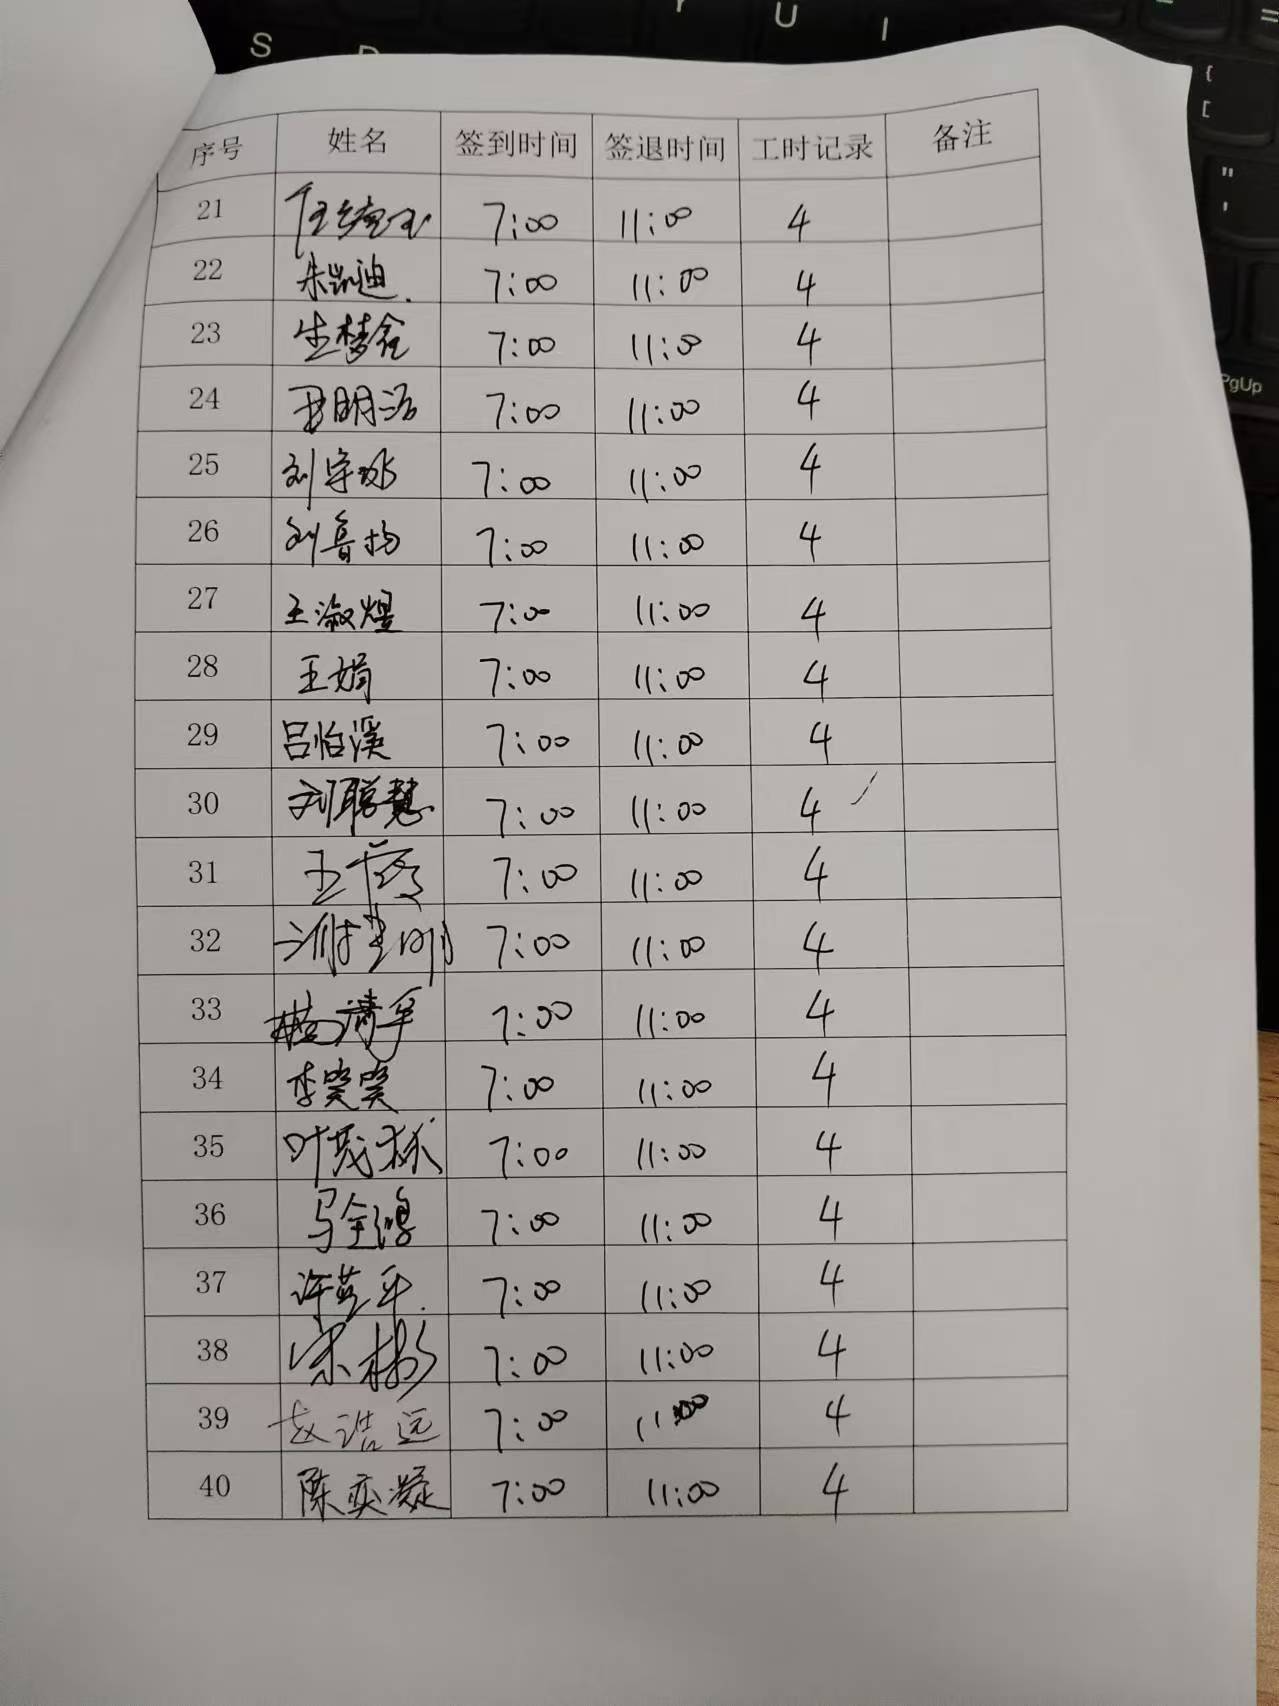 S D Y U I
{
[
"
'
PgUp
序号 姓名 签到时间 签退时间 工时记录 备注
21 7:00 11:00 4
22 朱凯迪 7:00 11:00 4
23 生梦鑫 7:00 11:00 4
24 明 7:00 11:00 4
25 刘宇 7:00 11:00 4
26 刘鲁扬 7:00 11:00 4
27 王淑煜 7:00 11:00 4
28 王娟 7:00 11:00 4
29 吕怡溪 7:00 11:00 4
30 刘聪慧 7:00 11:00 4
31 王 7:00 11:00 4
32 7:00 11:00 4
33 杨清 7:00 11:00 4
34 李笑笑 7:00 11:00 4
35 叶茂林 7:00 11:00 4
36 马全鸿 7:00 11:00 4
37 许 平 7:00 11:00 4
38 宋彬 7:00 11:00 4
39 赵浩远 7:00 11:00 4
40 陈奕凝 7:00 11:00 4